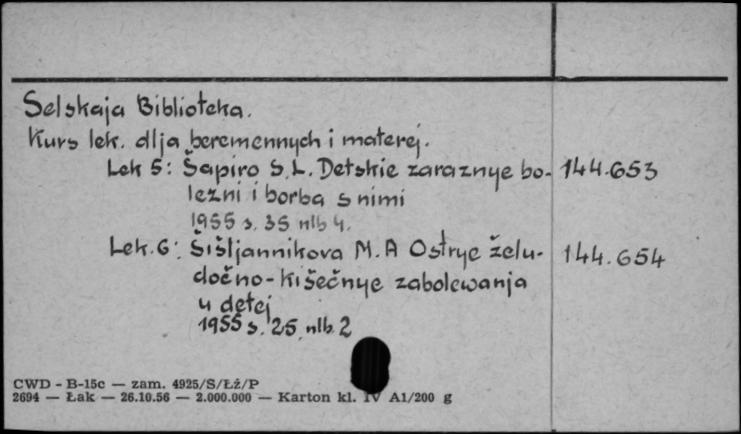 Selskaja Biblioteka.
Kurs lek. dlja beremennych i materej.
Lek 5: Šapiro S. L. Detskie zaraznye bo- 144.653
lezni i borba s nimi
1955 s. 35 nlb 4.
Lek. 6: Šišljannikova M. A Ostrye želu- 144.654
dočno-kišečnye zabolewanja
u detej
1955 s. 25 nlb. 2
CWD - B-15c — zam. 4925/S/Łź/P
2694 — Łak — 26.10.56 — 2.000.000 — Karton kl. IV A1/200 g